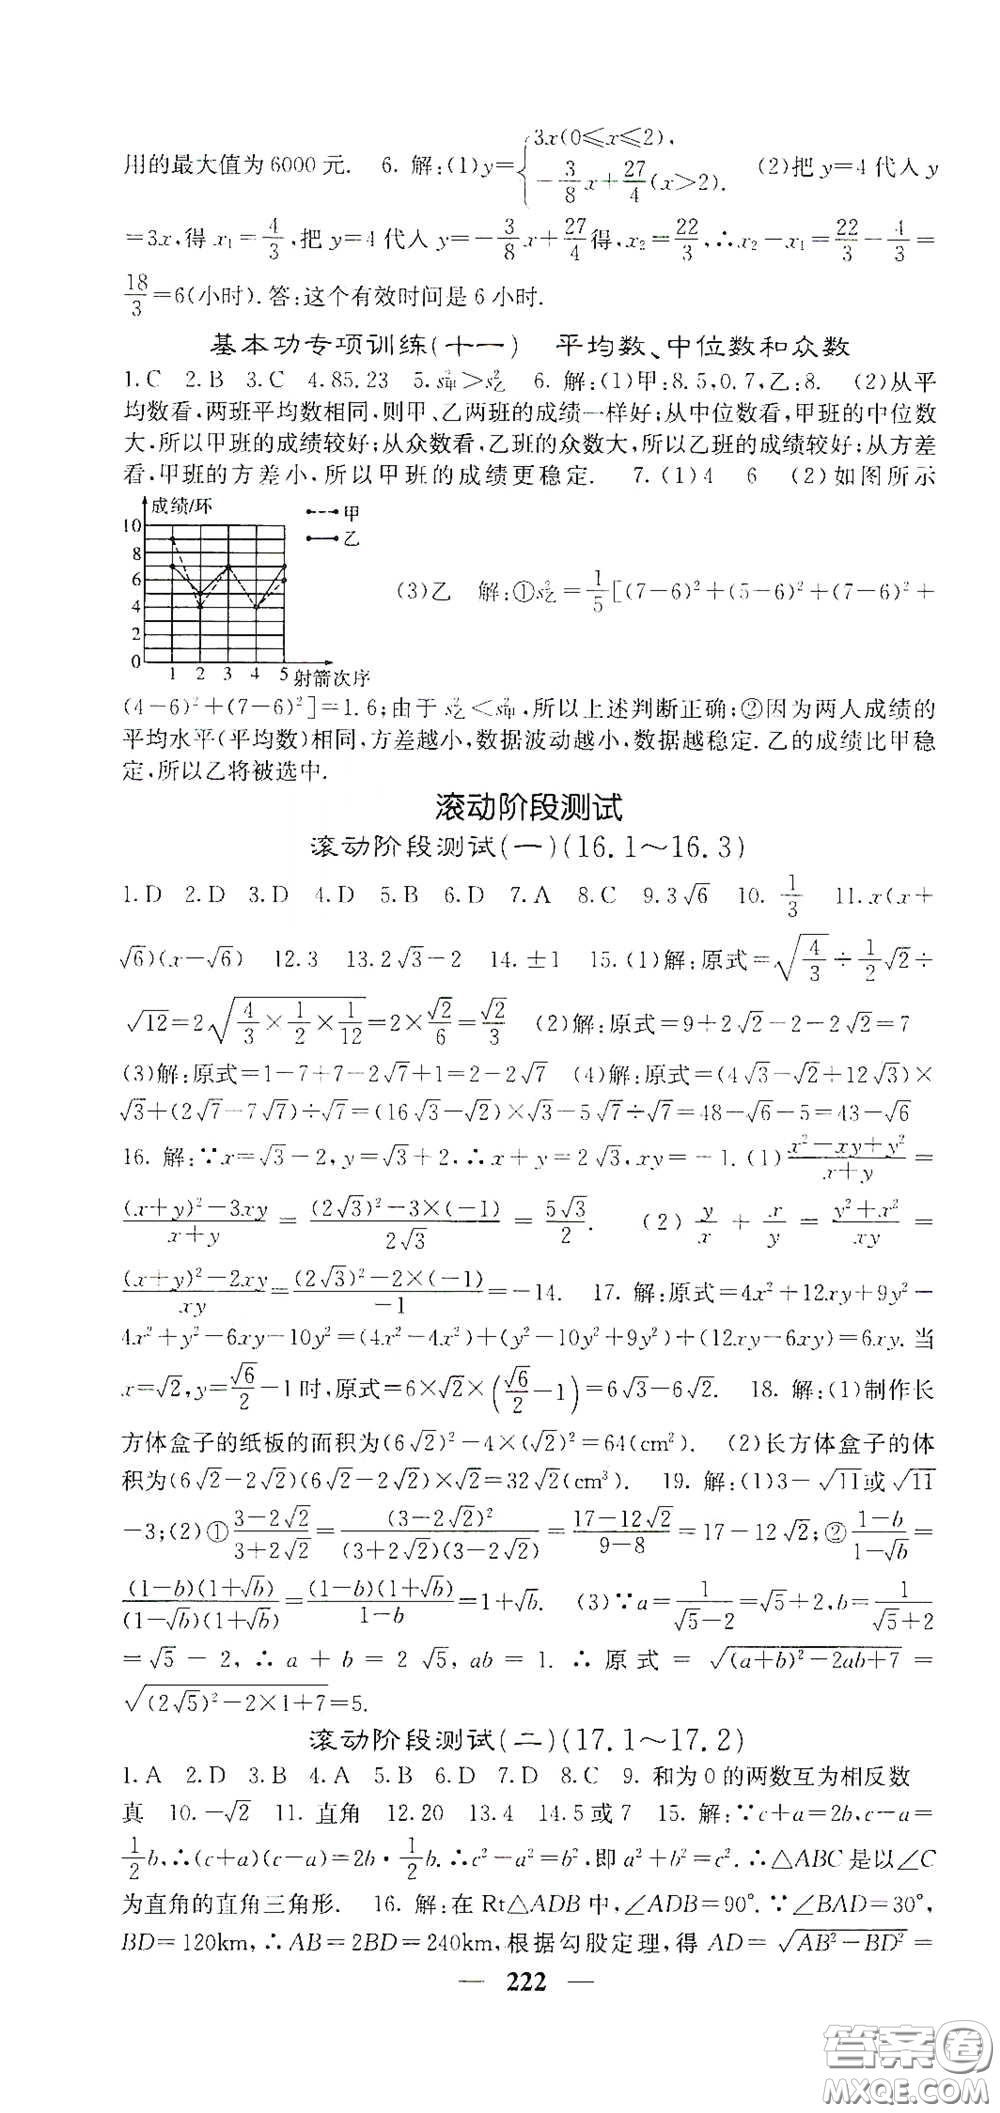 用的最大值为6000元. 6. 解:(1)y={3x(0≤x≤2), -3/8x+27/4(x>2). (2)把y=4代入y
=3x,得x₁=4/3,把y=4代入y=-3/8x+27/4得,x₂=22/3,∴x₂-x₁=22/3-4/3=
18/3=6(小时).答:这个有效时间是6小时.
基本功专项训练(十一) 平均数、中位数和众数
1.C 2.B 3.C 4.85.23 5.s²甲>s²乙 6. 解:(1)甲:8.5,0.7,乙:8. (2)从平
均数看,两班平均数相同,则甲、乙两班的成绩一样好;从中位数看,甲班的中位数
大,所以甲班的成绩较好;从众数看,乙班的众数大,所以乙班的成绩较好;从方差
看,甲班的方差小,所以甲班的成绩更稳定. 7.(1)4 6 (2)如图所示
成绩/环
甲
乙
10
8
6
4
2
0
1 2 3 4 5 射箭次序
(3)乙 解:①s²乙=1/5[(7-6)²+(5-6)²+(7-6)²+
(4-6)²+(7-6)²]=1.6;由于s²乙<s²甲,所以上述判断正确;②因为两人成绩的
平均水平(平均数)相同,方差越小,数据波动越小,数据越稳定.乙的成绩比甲稳
定,所以乙将被选中.
滚动阶段测试
滚动阶段测试(一)(16.1~16.3)
1.D 2.D 3.D 4.D 5.B 6.D 7.A 8.C 9.3√6 10. 1/3 11.x(x+
√6)(x-√6) 12.3 13.2√3-2 14.±1 15.(1)解:原式=√(4/3)÷1/2√2÷
√12=2√(4/3×1/2×1/12)=2×√2/6=√2/3 (2)解:原式=9+2√2-2-2√2=7
(3)解:原式=1-7+7-2√7+1=2-2√7 (4)解:原式=(4√3-√2+12√3)×
√3+(2√7-7√7)÷√7=(16√3-√2)×√3-5√7÷√7=48-√6-5=43-√6
16. 解:∵x=√3-2,y=√3+2,∴x+y=2√3,xy=-1.(1)(x²-xy+y²)/(x+y)=
((x+y)²-3xy)/(x+y)=((2√3)²-3×(-1))/(2√3)=5√3/2. (2)y/x+x/y=(y²+x²)/xy=
((x+y)²-2xy)/xy=((2√3)²-2×(-1))/(-1)=-14. 17. 解:原式=4x²+12xy+9y²-
4x²+y²-6xy-10y²=(4x²-4x²)+(y²-10y²+9y²)+(12xy-6xy)=6xy.当
x=√2,y=√6/2-1时,原式=6×√2×(√6/2-1)=6√3-6√2. 18. 解:(1)制作长
方体盒子的纸板的面积为(6√2)²-4×(√2)²=64(cm²). (2)长方体盒子的体
积为(6√2-2√2)(6√2-2√2)×√2=32√2(cm³). 19. 解:(1)3-√11或√11
-3;(2)①(3-2√2)/(3+2√2)=(3-2√2)²/((3+2√2)(3-2√2))=(17-12√2)/(9-8)=17-12√2;②(1-b)/(1-√b)=
((1-b)(1+√b))/((1-√b)(1+√b))=((1-b)(1+√b))/(1-b)=1+√b. (3)∵a=1/(√5-2)=√5+2,b=1/(√5+2)
=√5-2,∴a+b=2√5,ab=1.∴原式=√((a+b)²-2ab+7)=
√((2√5)²-2×1+7)=5.
滚动阶段测试(二)(17.1~17.2)
1.A 2.D 3.B 4.A 5.B 6.D 7.D 8.C 9. 和为0的两数互为相反数
真 10.-√2 11. 直角 12.20 13.4 14.5或7 15. 解:∵c+a=2b,c-a=
1/2b,∴(c+a)(c-a)=2b·1/2b.∴c²-a²=b²,即a²+b²=c².∴△ABC是以∠C
为直角的直角三角形. 16. 解:在Rt△ADB中,∠ADB=90°.∵∠BAD=30°,
BD=120km,∴AB=2BD=240km,根据勾股定理,得AD=√(AB²-BD²)=
— 222 —
答案圈
MXQE.COM